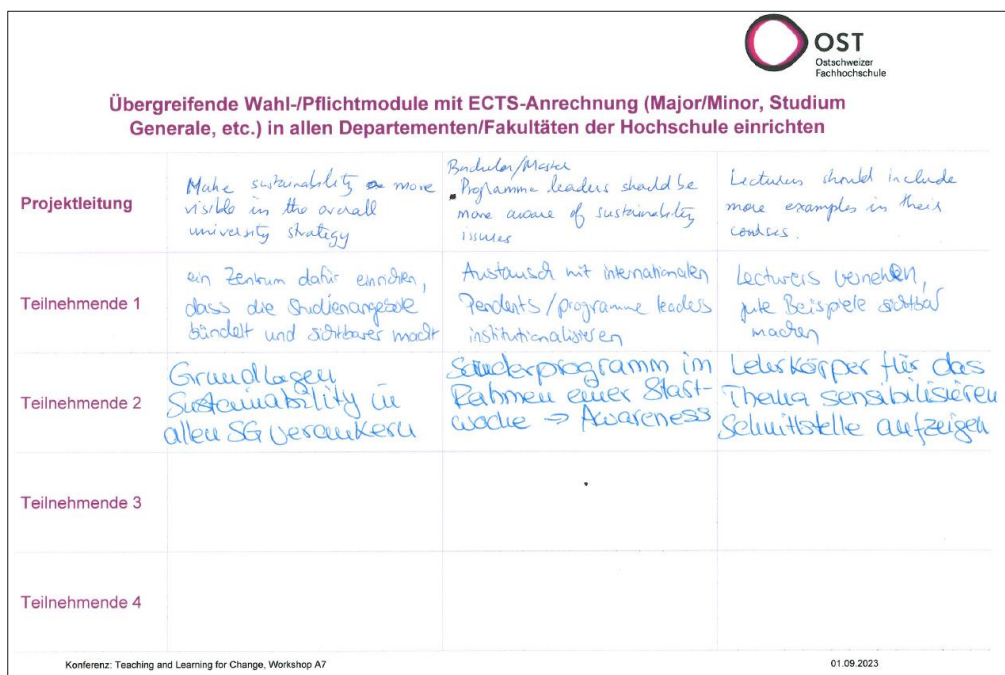 OST
Ostschweizer
Fachhochschule
Übergreifende Wahl-/Pflichtmodule mit ECTS-Anrechnung (Major/Minor, Studium
Generale, etc.) in allen Departementen/Fakultäten der Hochschule einrichten
Projektleitung
Make sustainability more
visible in the overall
university strategy
Bachelor/Master
Programme leaders should be
more aware of sustainability
issues
Lecturers should include
more examples in their
courses.
Teilnehmende 1
ein Zentrum dafür einrichten,
dass die Studienangebote
bündelt und sichtbarer macht
Austausch mit internationalen
Pendents/programme leaders
institutionalisieren
Lecturers vernetzen,
gute Beispiele sichtbar
machen
Teilnehmende 2
Grundlagen
Sustainability in
allen SG verankern
Sonderprogramm im
Rahmen einer Start-
woche → Awareness
Lehrkörper für das
Thema sensibilisieren
Schnittstelle aufzeigen
Teilnehmende 3
Teilnehmende 4
Konferenz: Teaching and Learning for Change, Workshop A7
01.09.2023